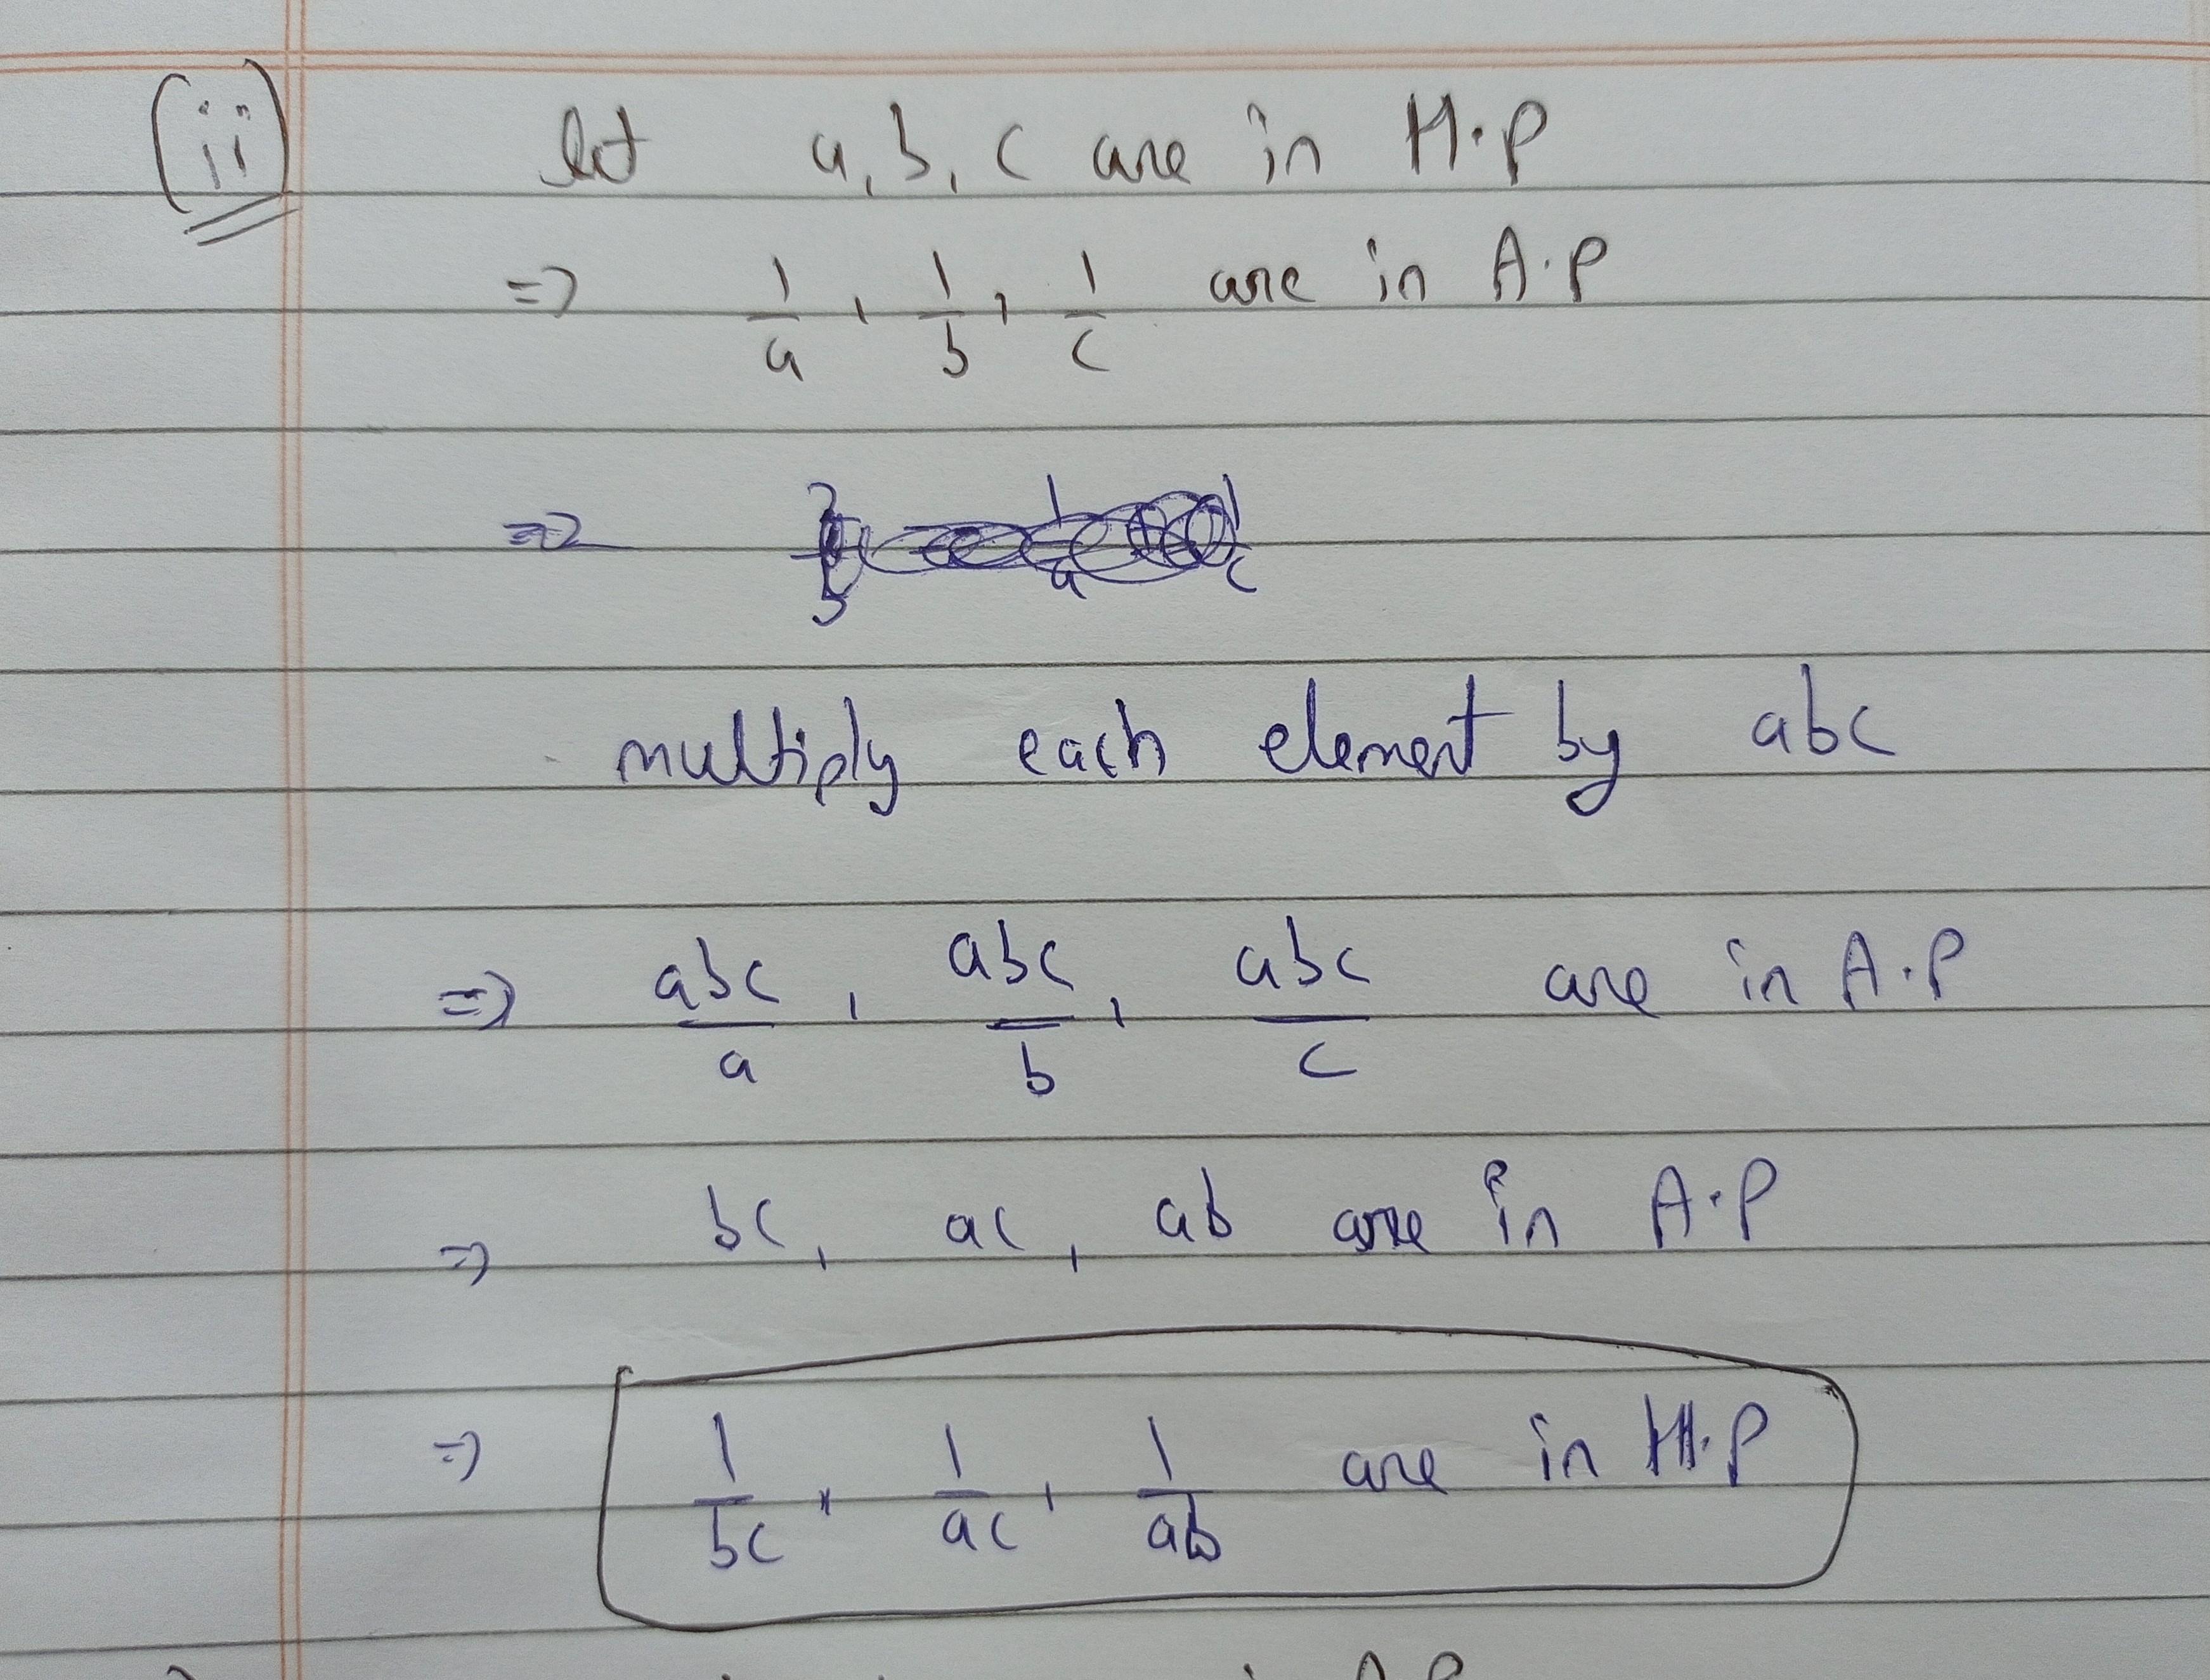 (ii) let a, b, c are in H.P
=> 1/a , 1/b , 1/c are in A.P
=>
multiply each element by abc
=> abc/a , abc/b , abc/c are in A.P
=> bc, ac, ab are in A.P
=> 1/bc , 1/ac , 1/ab are in H.P